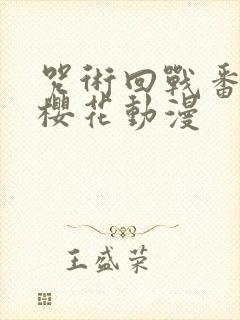 咒術回戰番
櫻花動漫
王盛荣